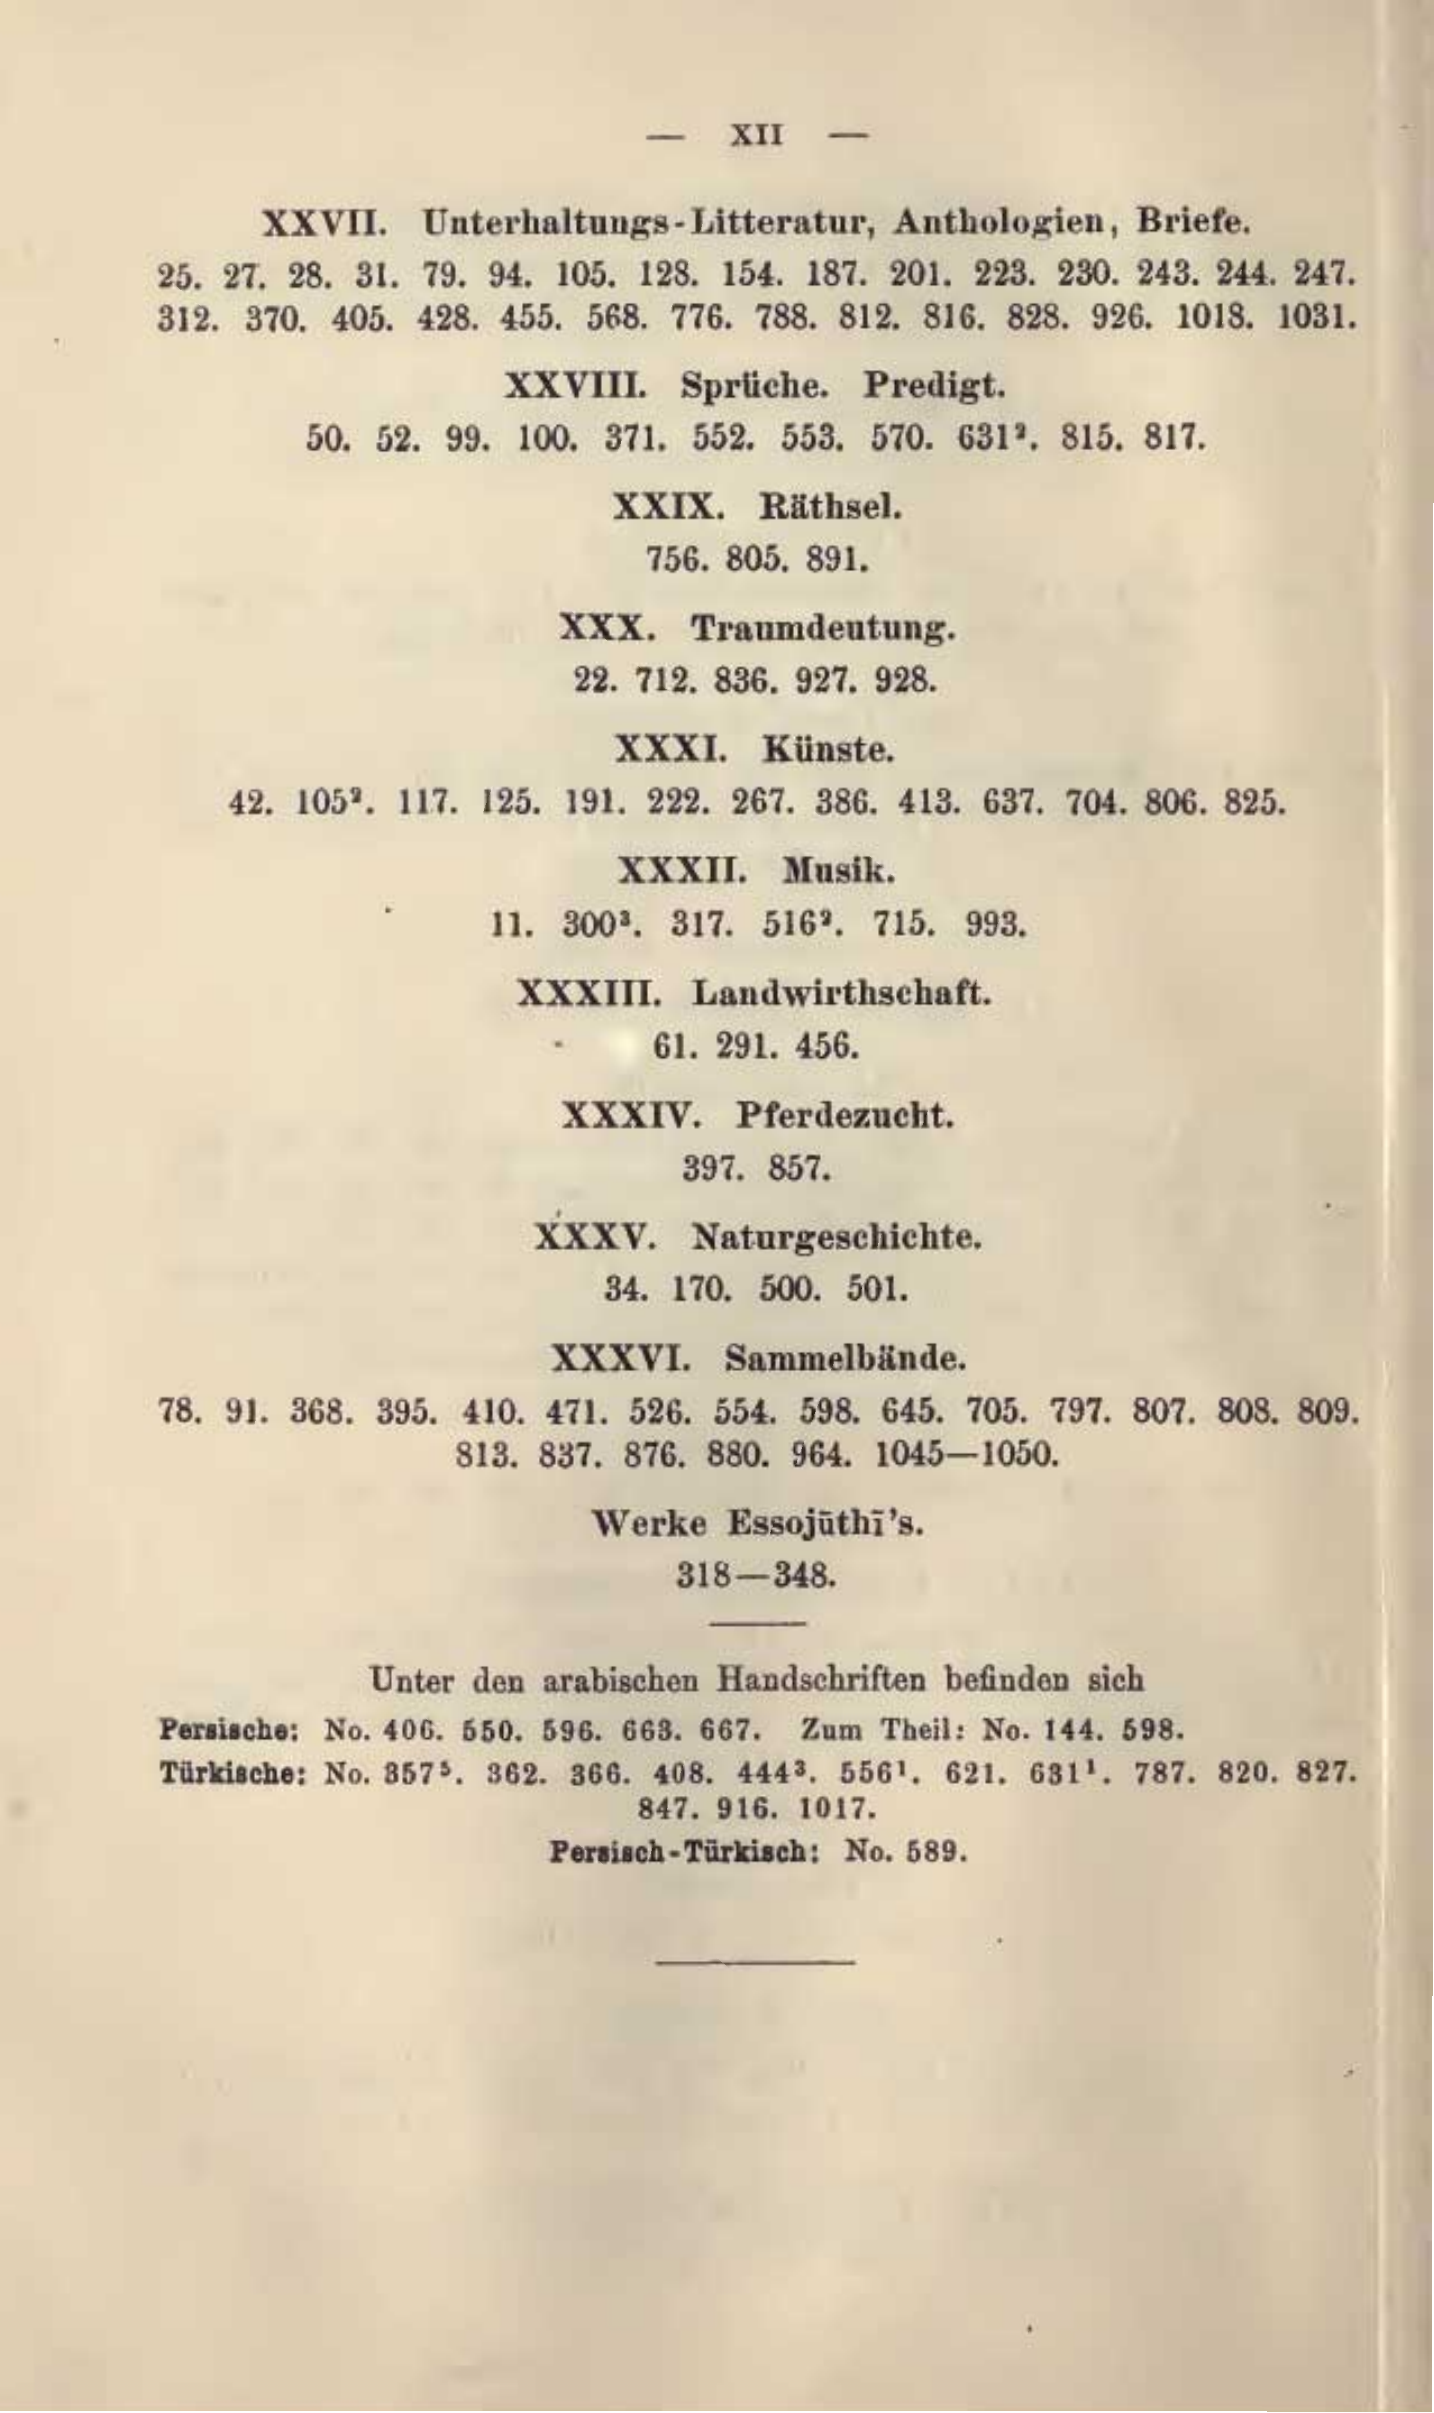 — XII —
XXVII. Unterhaltungs-Litteratur, Anthologien, Briefe.
25. 27. 28. 31. 79. 94. 105. 128. 154. 187. 201. 223. 230. 243. 244. 247.
312. 370. 405. 428. 455. 568. 776. 788. 812. 816. 828. 926. 1018. 1031.
XXVIII. Sprüche. Predigt.
50. 52. 99. 100. 371. 552. 553. 570. 631². 815. 817.
XXIX. Räthsel.
756. 805. 891.
XXX. Traumdeutung.
22. 712. 836. 927. 928.
XXXI. Künste.
42. 105². 117. 125. 191. 222. 267. 386. 413. 637. 704. 806. 825.
XXXII. Musik.
11. 300³. 317. 516². 715. 993.
XXXIII. Landwirthschaft.
61. 291. 456.
XXXIV. Pferdezucht.
397. 857.
XXXV. Naturgeschichte.
34. 170. 500. 501.
XXXVI. Sammelbände.
78. 91. 368. 395. 410. 471. 526. 554. 598. 645. 705. 797. 807. 808. 809.
813. 837. 876. 880. 964. 1045—1050.
Werke Essojūthī's.
318—348.
Unter den arabischen Handschriften befinden sich
Persische: No. 406. 550. 596. 663. 667. Zum Theil: No. 144. 598.
Türkische: No. 357⁵. 362. 366. 408. 444³. 556¹. 621. 631¹. 787. 820. 827.
847. 916. 1017.
Persisch-Türkisch: No. 589.